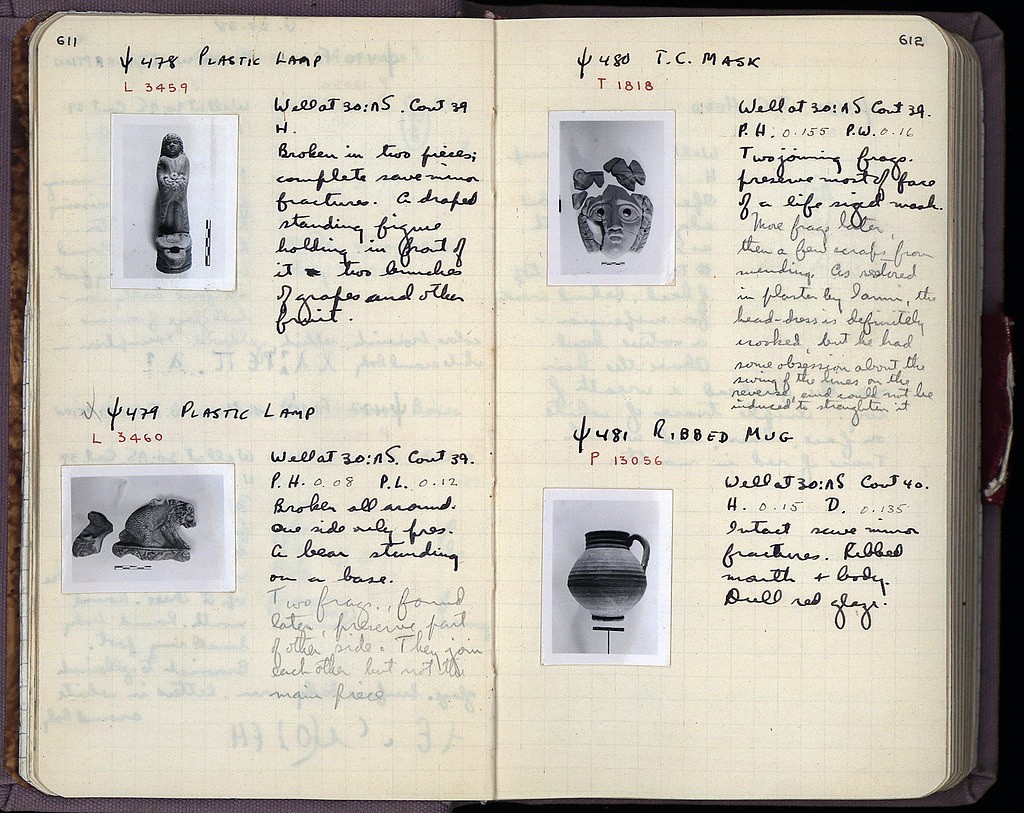 611
ψ 478 PLASTIC LAMP
L 3459
Well at 30:ΛS. Cont 39
H.
Broken in two pieces;
complete save minor
fractures. A draped
standing figure
holding in front of
it two bunches
of grapes and other
fruit.
ψ 479 PLASTIC LAMP
L 3460
Well at 30:ΛS. Cont 39.
P.H. 0.08 P.L. 0.12
Broken all around.
One side only pres.
A bear standing
on a base.
Two frags., found
later, preserve part
of other side. They join
each other but not the
main piece
612
ψ 480 T.C. MASK
T 1818
Well at 30:ΛS Cont 39.
P.H. 0.155 P.W. 0.16
Two joining frags.
preserve most of face
of a life sized mask.
More frags later,
then a few scraps from
mending. As restored
in plaster by, the
head-dress is definitely
crooked, but he had
some obsession about the
swing of the lines on the
reverse, and could not be
induced to straighten it
ψ 481 RIBBED MUG
P 13056
Well at 30:ΛS Cont 40.
H. 0.15 D. 0.135
Intact save minor
fractures. Ribbed
mouth + body.
Dull red glaze.